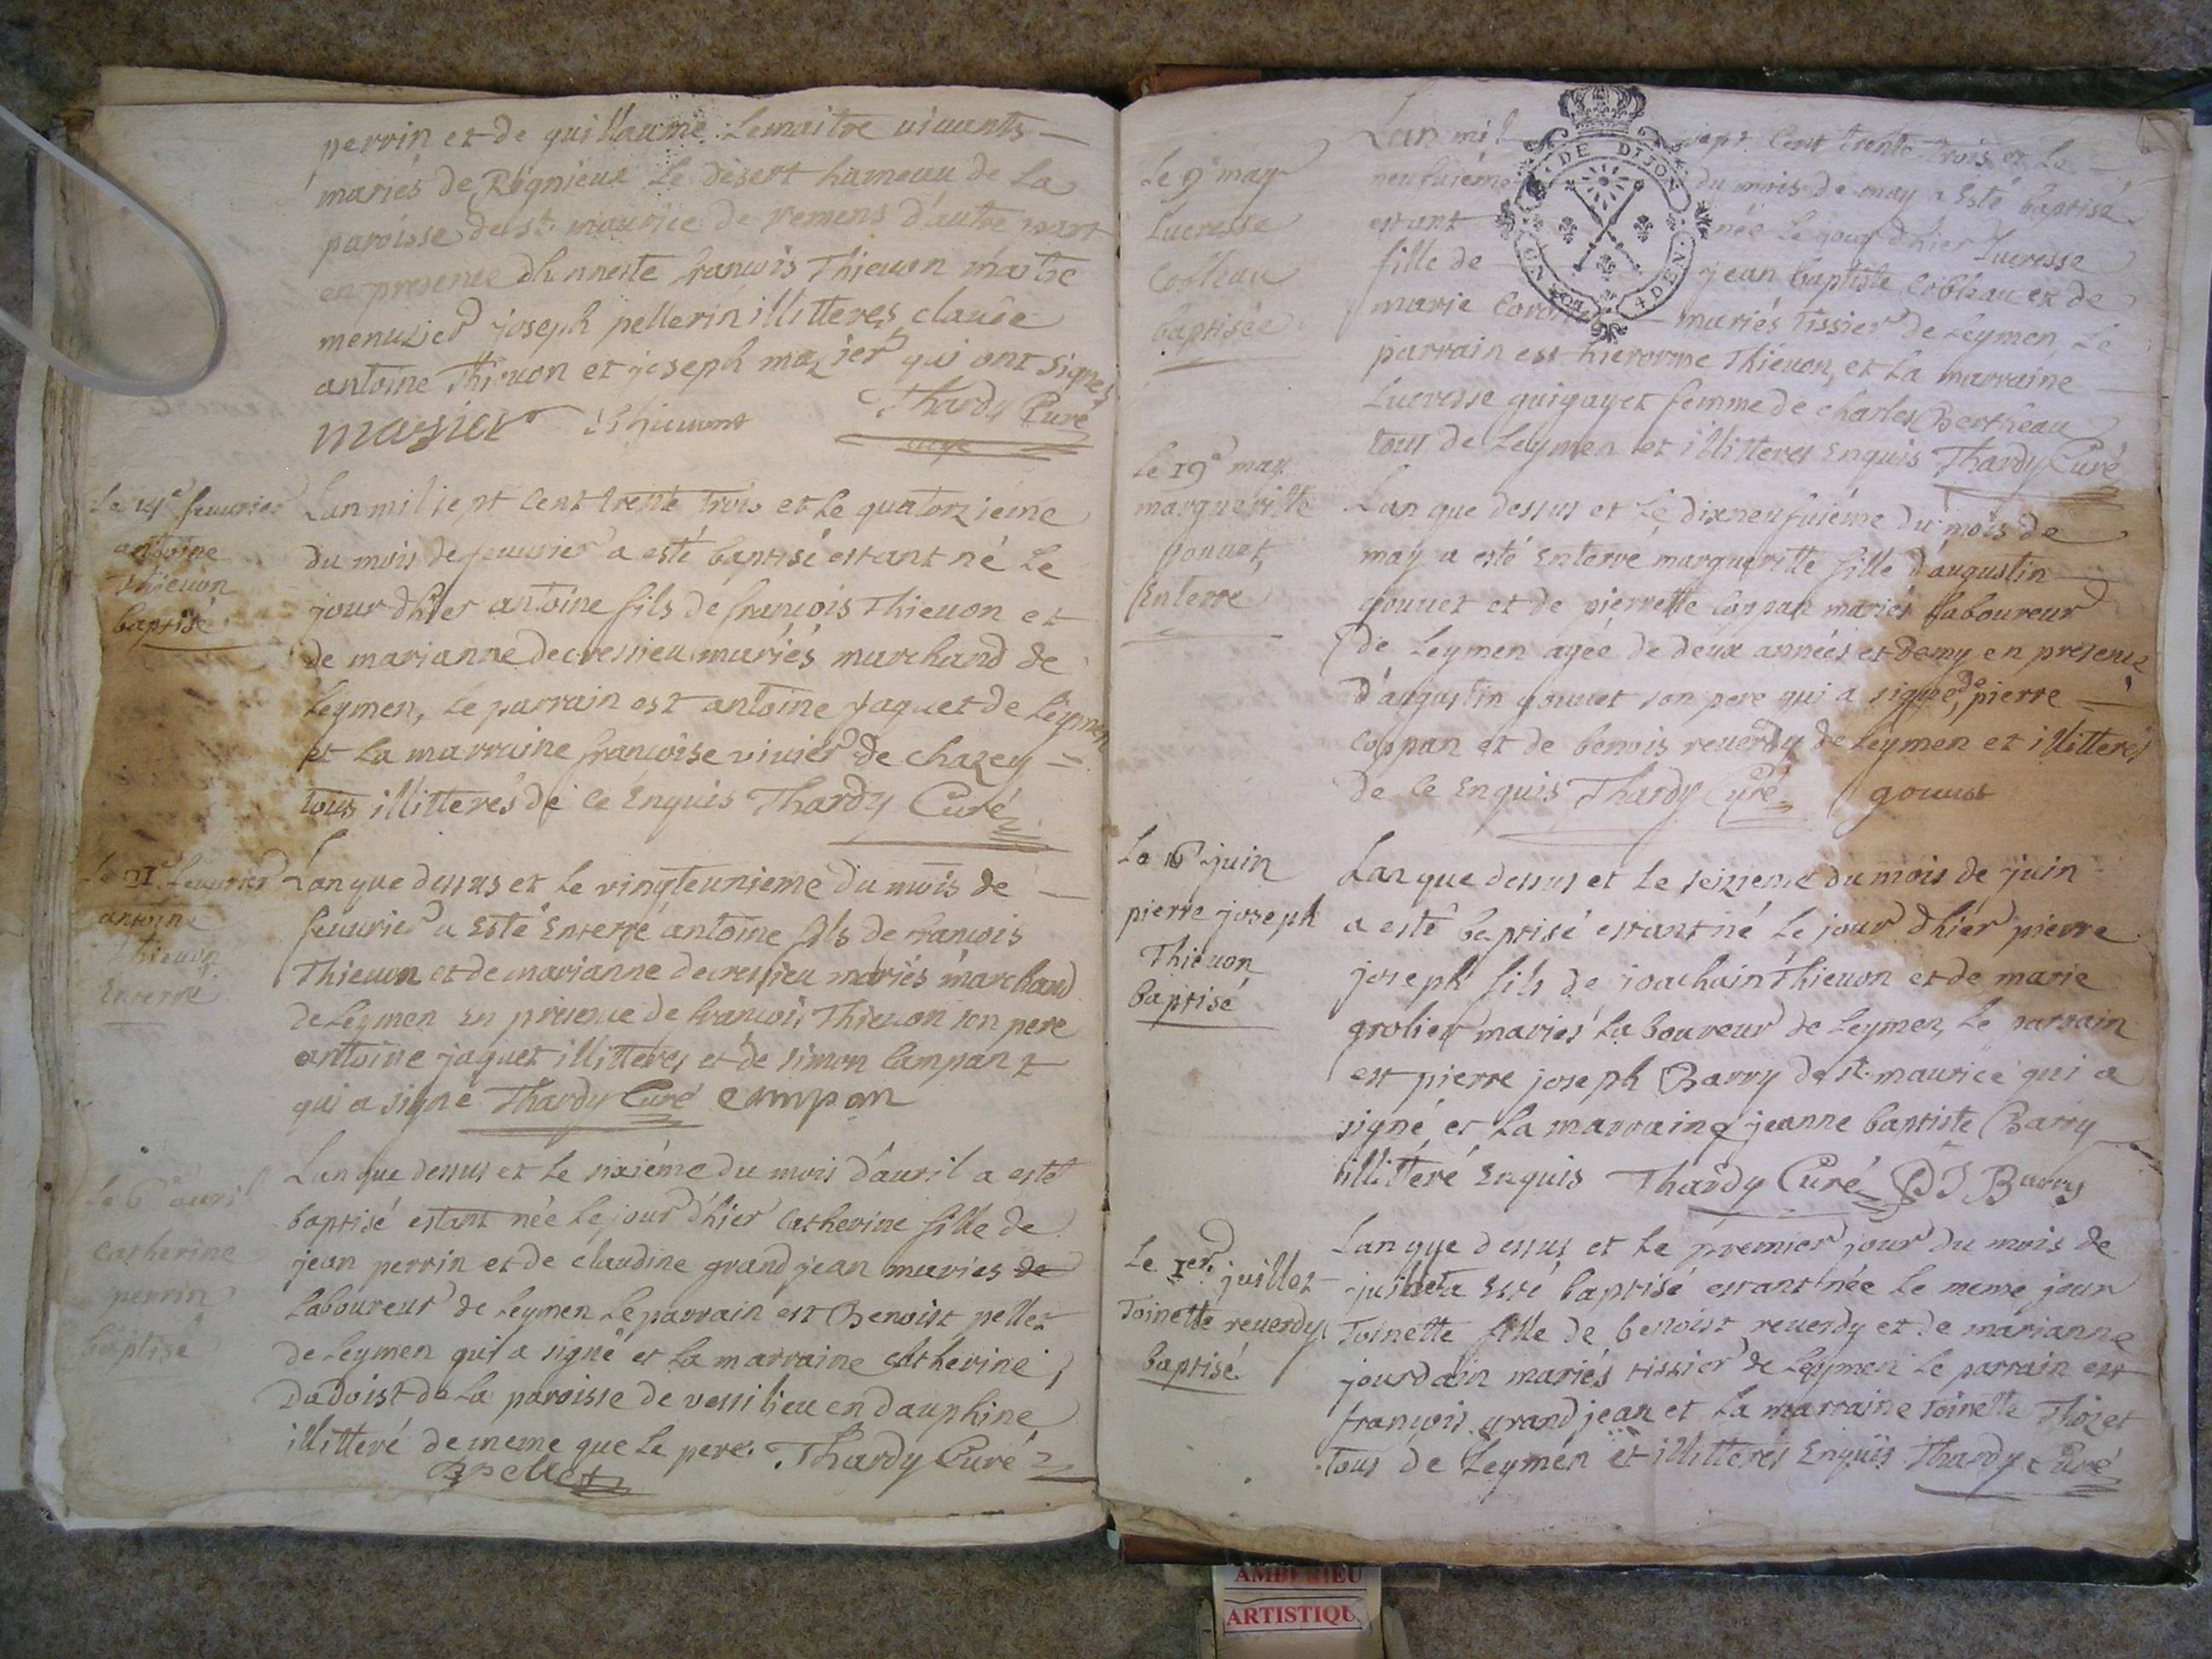 perrin et de guillaume Lemaitre vivants
mariés de Régnieux Le désert hameau de La
paroisse de st. maurice de remens d'autre part
en presence dhonneste francois Thieuon maitre
menuzier joseph pellerin illitteres, claude
antoine Thieuon et joseph mazier qui ont signés
mazier Thieuont Thardy Curé
Le 14e feuurier
antoine
Thieuon
baptisé
Lan mil sept Cent trente trois et Le quatorzieme
du mois de feuurier a esté baptisé estant né Le
jour dhier antoine fils de francois Thieuon et
de marianne decressieu mariés marchand de
Leymen, Le parrain est antoine jaquet de Leymen
et La marraine francoise vivier de chazey
tous illitterés de ce Enquis Thardy Curé
Le 21e feuurier
antoine
Thieuon
Enterré
Lan que dessus et Le vingteunieme du mois de
feuurier a Esté Enterré antoine fils de francois
Thieuon et de marianne decressieu mariés marchand
de Leymen En presence de francois Thieuon son pere
antoine jaquet illitteres et de simon Campant
qui a signé Thardy Curé campan
Le 6e auril
Catherine
perrin
baptisé
Lan que dessus et Le sixiéme du mois d'auril a esté
baptisé estant née Le jour d'hier Catherine fille de
jean perrin et de claudine grand jean maries de
Laboureur de Leymen Le parrain est Benoist pellet
de Leymen qui a signé et La marraine Catherine
Dadoist de La paroisse de vessilieu en dauphine
illitteré de meme que Le pere. Thardy Curé
B pellet
Le 9e may
Lucresse
Cobleau
baptisée
Lan mil sept Cent trente trois et Le
neufuiéme du mois de may a Esté baptisé
estant née Le jour dhier Lucresse
DE DIJON
4 DEN.
fille de jean baptiste Cobleau et de
marie mariés Tissier de Leymen Le
parrain est hierorme Thieuon, et La marraine
Lucresse guigayet femme de charles Bertheau
tous de Leymen et illitteres Enquis Thardy Curé
Le 19e may
margueritte
gouuet
Enterré
Lan que dessus et Le dixneufuiéme du mois de
may a esté Enterré margueritte fille d'augustin
gouuet et de pierrette Coppan mariés Laboureur
de Leymen agée de deux années et Demy en presence
d'augustin gouuet son pere qui a signé, de pierre
Coppan et de benois reuerdy de Leymen et illitterés
de Ce Enquis Thardy Curé gouuet
Le 16e juin
pierre joseph
Thieuon
baptisé
Lan que dessus et Le seizieme du mois de juin
a esté baptisé estant né Le jour dhier pierre
joseph fils de joachain Thieuon et de marie
grolier mariés Laboureur de Leymen, Le parrain
est pierre joseph Barry de st. maurice qui a
signé et La marraine jeanne baptiste Barry
illitteré Enquis Thardy Curé PJ Barry
Le 1er. juillet
Toinette reuerdy
baptisé
Lan que dessus et Le premier jour du mois de
juillet a Esté baptisé estant née Le meme jour
Toinette fille de benoist reuerdy et de marianne
jourdain mariés tissier de Leymen Le parrain est
francois grand jean et La marraine Toinette Thozet
tous de Leymen et illitterés Enquis Thardy Curé
AMBERIEU
ARTISTIQU